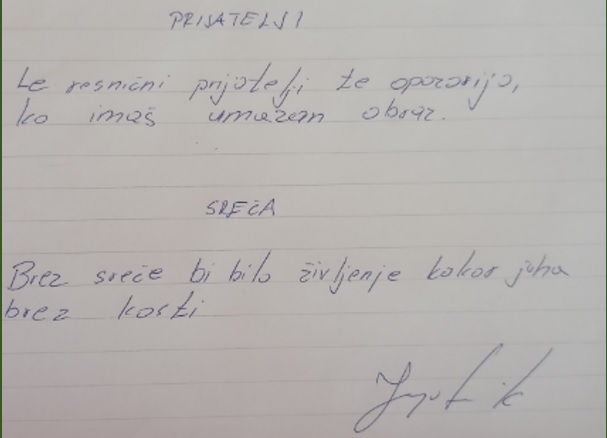 PRIJATELJI
Le resnični prijatelji te opozorijo,
ko imaš umazan obraz.
SREČA
Brez sreče bi bilo življenje kakor juha
brez kosti